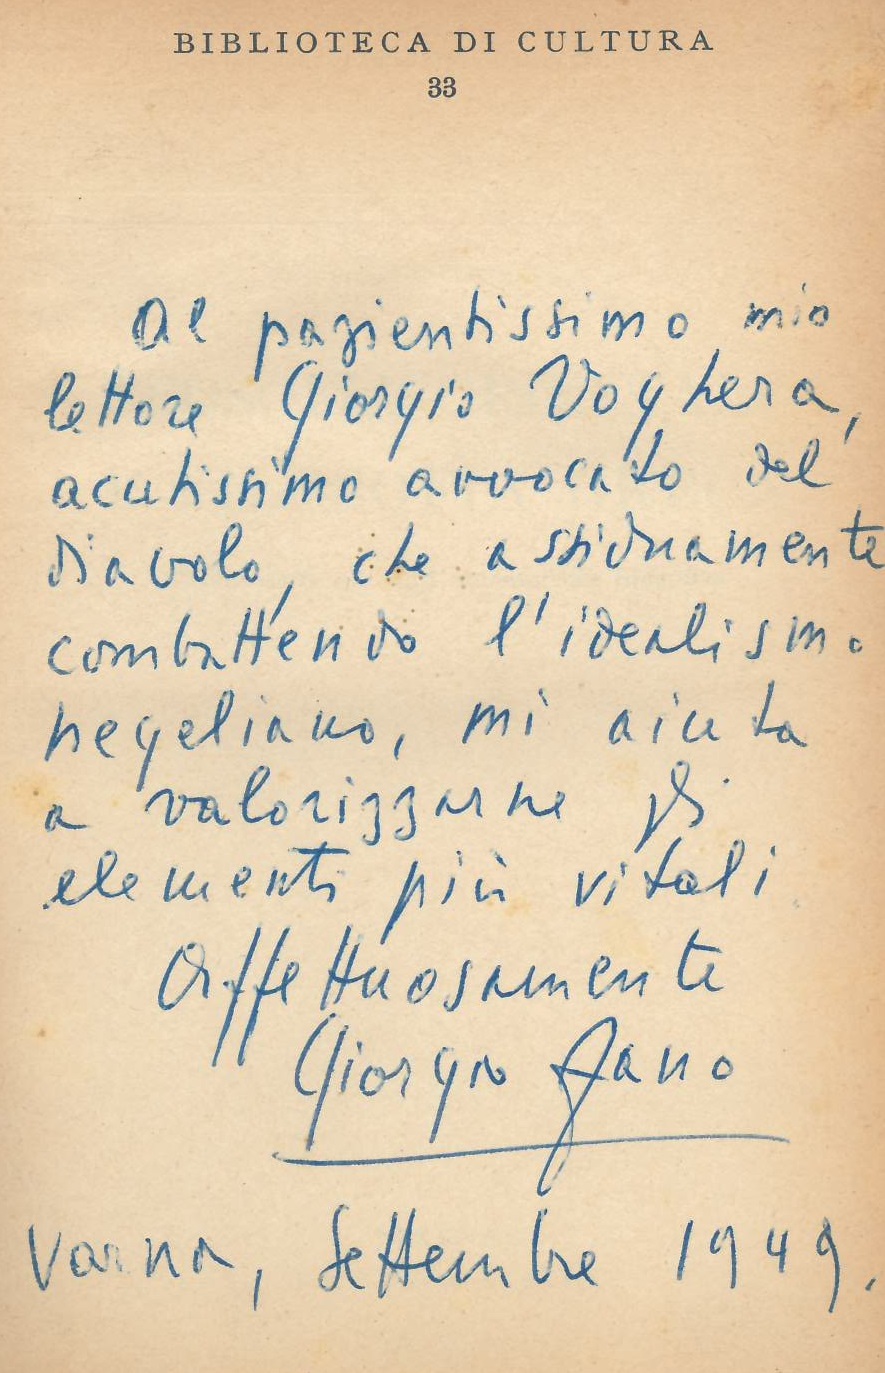 BIBLIOTECA DI CULTURA
33
Al pazientissimo mio
lettore Giorgio Voghera,
acutissimo avvocato del
diavolo, che assiduamente
combattendo l'idealismo
hegeliano, mi aiuta
a valorizzarne gli
elementi più vitali
Affettuosamente
Giorgio Fano
Varna, Settembre 1949.